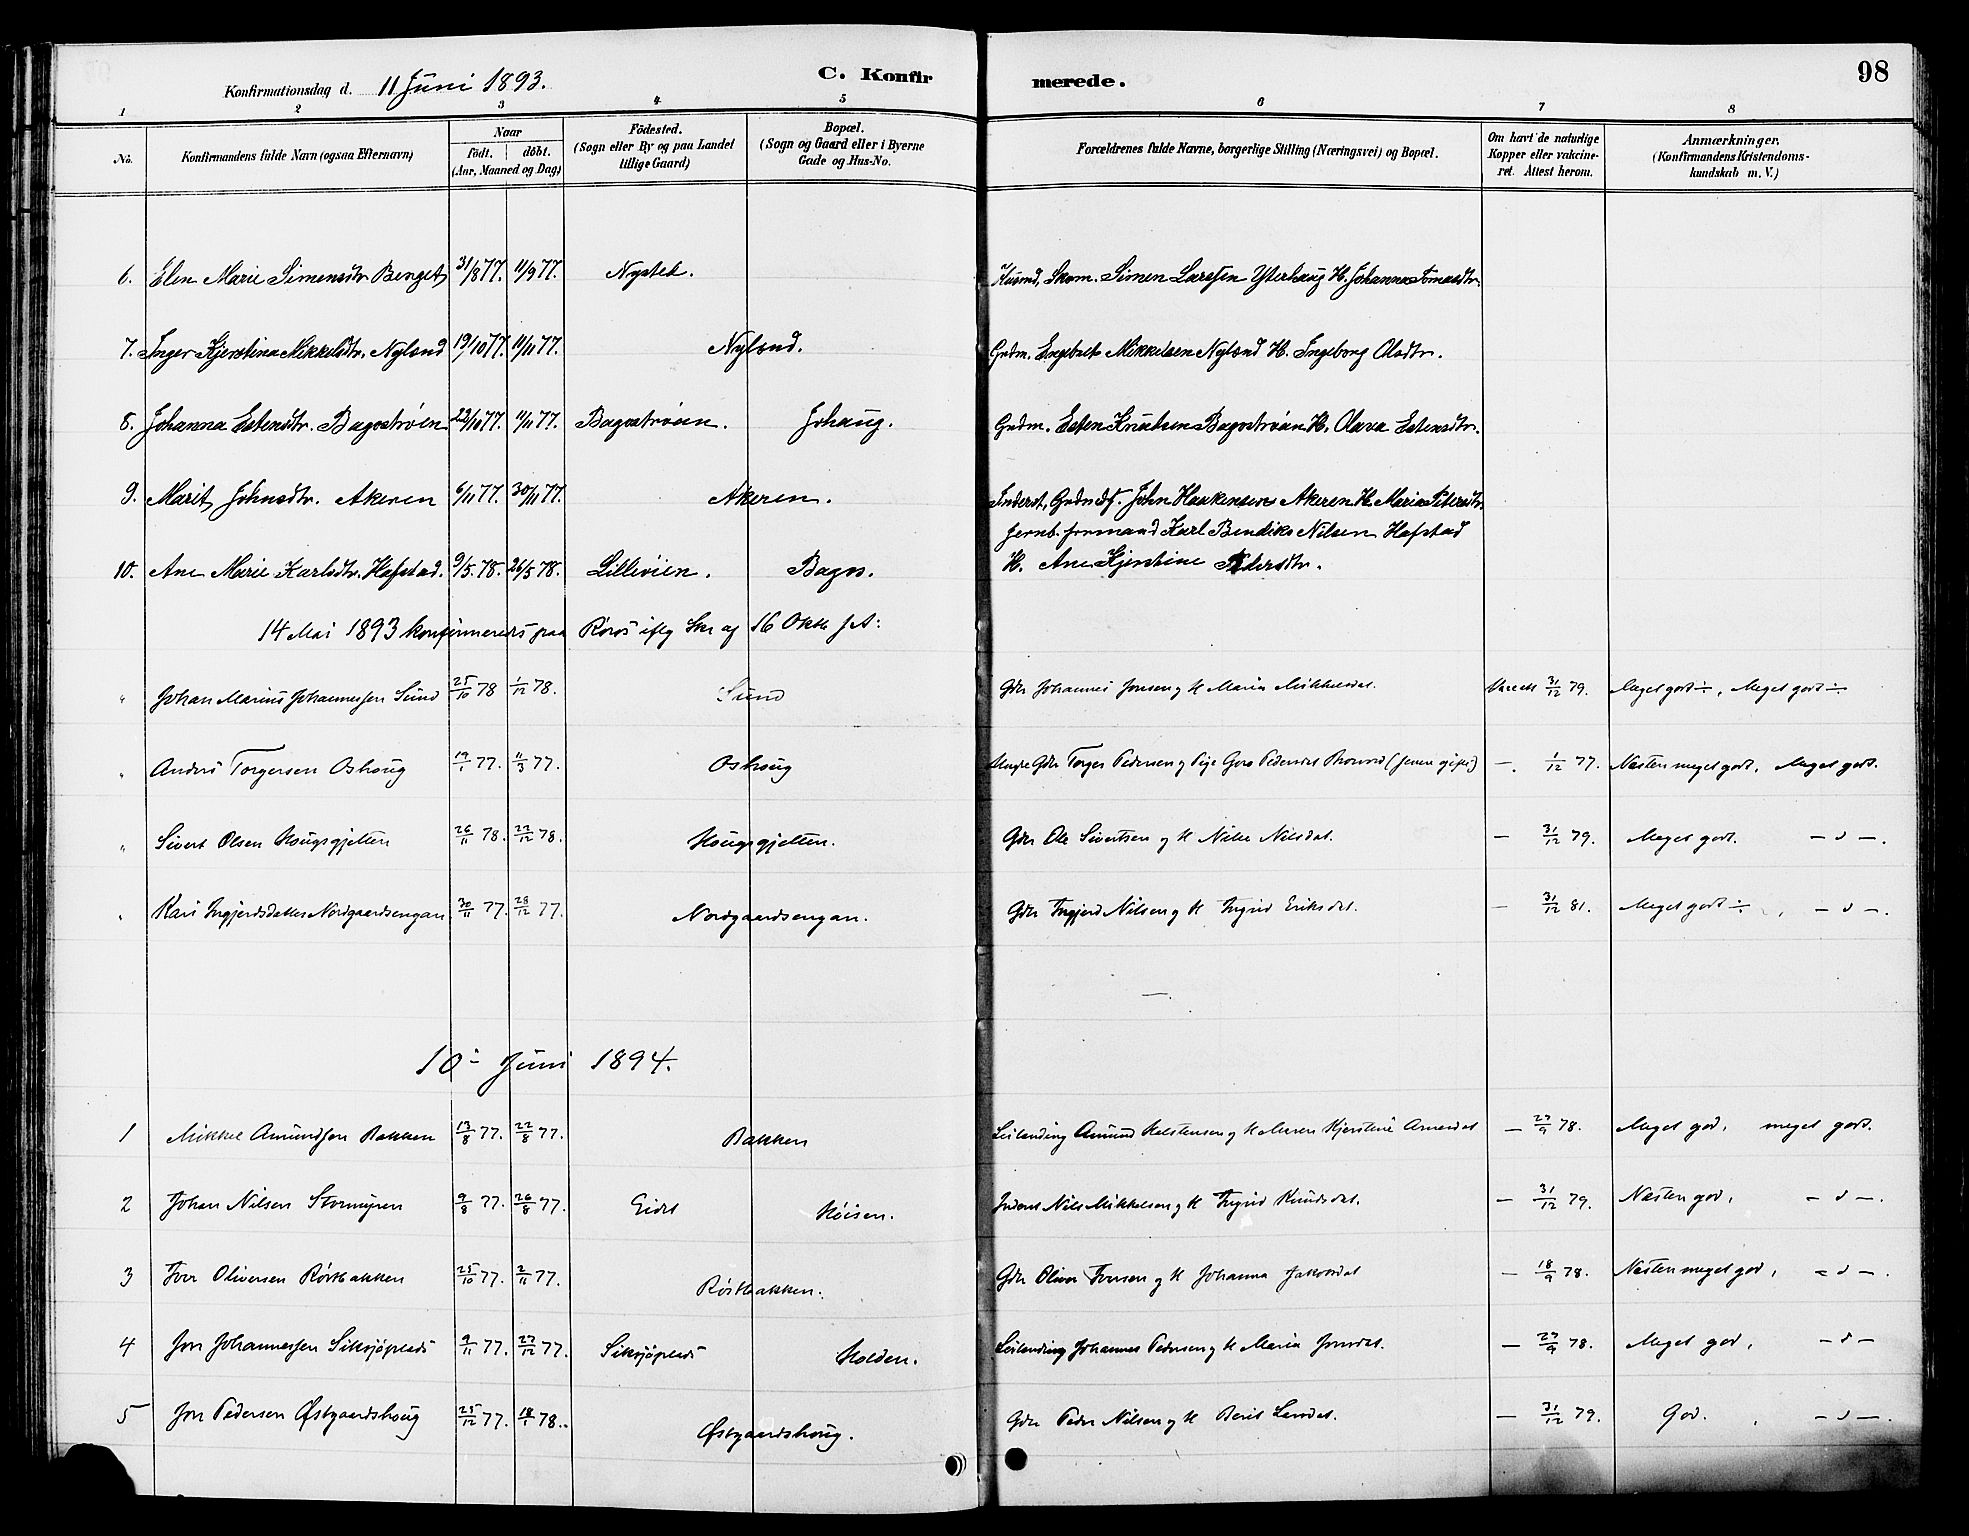 98
Konfirmationsdag d. 11 Juni 1893. C. Konfirmerede.
1 2 3 4 5 6 7 8
No. Konfirmandens fulde Navn (ogsaa Efternavn) Naar født. døbt. (Aar, Maaned og Dag) Födested. (Sogn eller By og paa Landet tillige Gaard) Bopæl. (Sogn og Gaard eller i Byerne Gade og Hus-No. Forældrenes fulde Navne, borgerlige Stilling (Næringsvei) og Bopæl. Om havt de naturlige Kopper eller vakcineret. Attest herom. Anmærkninger. (Konfirmandens Kristendomskundskab m. V.)
6. Elen Marie Simensdtr. Benget 31/8 77. 11/9 77. Nystek. Husmd, Skom. Simen Larssen Ytterhaug H. Johanna Tomasdtr.
7. Inger Kjerstina Mikkelsdtr. Nylænd 19/10 77. 11/11 77. Nylænd. Grdm. Engebret Mikkelsen Nylænd H. Ingeborg Olsdtr.
8. Johanna Estensdtr. Bagostrøen 22/10 77. 11/11 77. Bagostrøen. Johaug. Grdm. Esten Knutsen Bagostrøen H. Olava Estensdtr.
9. Marit Johnsdtr. Akeren 6/11 77. 30/11 77. Akeren. Inderst, Grdm. John Haakensen Akeren H. Maria Petersdtr.
Jernb. formand Karl Bendiks Nilsen Hafstad
10. Ane Marie Karlsdtr. Hafstad. 9/5. 78. 26/5 78. Lilleøien. Bagos. H. Ane Kjerstine Pedersdtr.
14 Mai 1893 konfirmeredes paa Røros iflg Skr af 16 Oktb f A:
" Johan Marius Johannessen Sund 25/10 78 1/12 78. Sund Gdr Johannes Jonsen og H Maria Mikkelsdat. Vaccd 31/12 79. Meget godt ÷, Meget godt ÷
" Anders Torgersen Oshoug 19/1 77. 11/3 77. Oshoug Gdr Torger Pedersen og Pige Goro Pedersdat — 1/12 77. Næsten meget godt, Meget godt.
" Sivert Olsen Hougsgjelten 26/11 78. 22/12 78. Hougsgjelten. Gdr Ole Sivertsen og H Nilsdat. — 31/12 79. Meget godt. — d —.
" Kari Ingjerdsdatter Nordgaardsengan 30/11 77. 28/12 77. Nordgaardsengan. Gdr Ingjerd Nilsen og H Ingrid Eriksdat. — 31/12 81. Meget godt ÷, — d —.
10de Juni 1894.
1 Mikkel Amundsen Bakken 13/8 77. 22/8 77. Bakken Leilending Amund Halstensen og H Maren Kjerstine Arnesdat — 27/9 78. Meget god, meget godt.
2 Johan Nilsen Stormyren 9/8 77. 26/8 77. Eidet Moisen. Inderst Nils Mikkelsen og H Ingrid Knudsdat. — 31/12 79. Næsten god, — d —.
3 Iver Oliversen Røstbakken 25/10 77. 2/11 77. Røstbakken. Gdr Oliver Iversen og H Johanna Jakobsdat — 18/9 78. Næsten meget god, — d —.
4 Jon Johannessen Siksjøplads 9/11 77. 27/12 77. Siksjøplads Holden. Leilending Johannes Pedersen og H Maria Jonsdat. — 27/9 78. Meget god, — d —
5 Jon Pedersen Østgaardshoug 25/12 77. 18/1 78.. Østgaardshoug. Gdr Peder Nilsen og H Berit Larsdat. — 31/12 79. God. — d —.